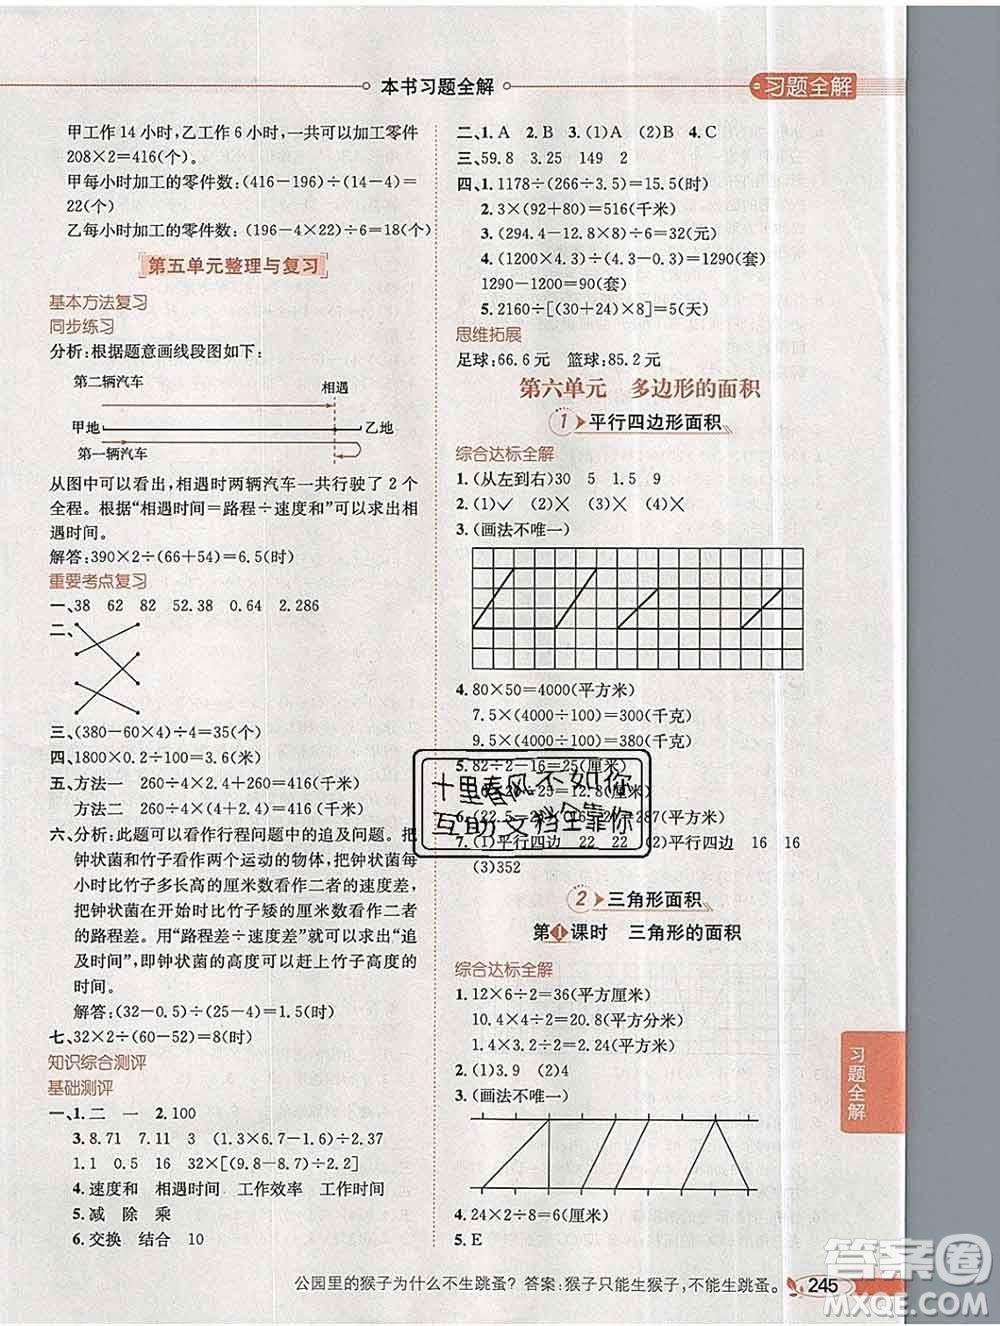 本书习题全解
习题全解
甲工作14小时,乙工作6小时,一共可以加工零件
208×2=416(个)。
甲每小时加工的零件数:(416-196)÷(14-4)=
22(个)
乙每小时加工的零件数:(196-4×22)÷6=18(个)
第五单元整理与复习
基本方法复习
同步练习
分析:根据题意画线段图如下:
第二辆汽车
相遇
甲地
乙地
第一辆汽车
从图中可以看出,相遇时两辆汽车一共行驶了2个
全程。根据“相遇时间=路程÷速度和”可以求出相
遇时间。
解答:390×2÷(66+54)=6.5(时)
重要考点复习
一、38 62 82 52.38 0.64 2.286
二、
三、(380-60×4)÷4=35(个)
四、1800×0.2÷100=3.6(米)
五、方法一 260÷4×2.4+260=416(千米)
方法二 260÷4×(4+2.4)=416(千米)
六、分析:此题可以看作行程问题中的追及问题。把
钟状菌和竹子看作两个运动的物体,把钟状菌每
小时比竹子多长高的厘米数看作二者的速度差,
把钟状菌在开始时比竹子矮的厘米数看作二者
的路程差。用“路程差÷速度差”就可以求出“追
及时间”,即钟状菌的高度可以赶上竹子高度的
时间。
解答:(32-0.5)÷(25-4)=1.5(时)
七、32×2÷(60-52)=8(时)
知识综合测评
基础测评
一、1.二 一 2.100
3.8.71 7.11 3 (1.3×6.7-1.6)÷3=2.37
1.1 0.5 16 32×[(9.8-8.7)÷2.2]
4.速度和 相遇时间 工作效率 工作时间
5.减 除 乘
6.交换 结合 10
二、1.A 2.B 3.(1)A (2)B 4.C
三、59.8 3.25 149 2
四、1.1178÷(266÷3.5)=15.5(时)
2.3×(92+80)=516(千米)
3.(294.4-12.8×8)÷6=32(元)
4.(1200×4.3)÷(4.3-0.3)=1290(套)
1290-1200=90(套)
5.2160÷[(30+24)×8]=5(天)
思维拓展
足球:66.6元 篮球:85.2元
第六单元 多边形的面积
1 平行四边形面积
综合达标全解
1.(从左到右)30 5 1.5 9
2.(1)✓ (2)× (3)× (4)×
3.(画法不唯一)
4.80×50=4000(平方米)
7.5×(4000÷100)=300(千克)
9.5×(4000÷100)=380(千克)
5.82÷2-16=25(厘米)
=12.8(厘米)
287(平方米)
7.(1)平行四边 22 22 (2)平行四边 16 16
(3)352
十里春风不如你
互助文档全靠你
2 三角形面积
第1课时 三角形的面积
综合达标全解
1.12×6÷2=36(平方厘米)
10.4×4÷2=20.8(平方分米)
1.4×3.2÷2=2.24(平方米)
2.(1)3.9 (2)4
3.(画法不唯一)
4.24×2÷8=6(厘米)
5.E
习题全解
公园里的猴子为什么不生跳蚤?答案:猴子只能生猴子,不能生跳蚤。
245
答案圈
MXQE.COM